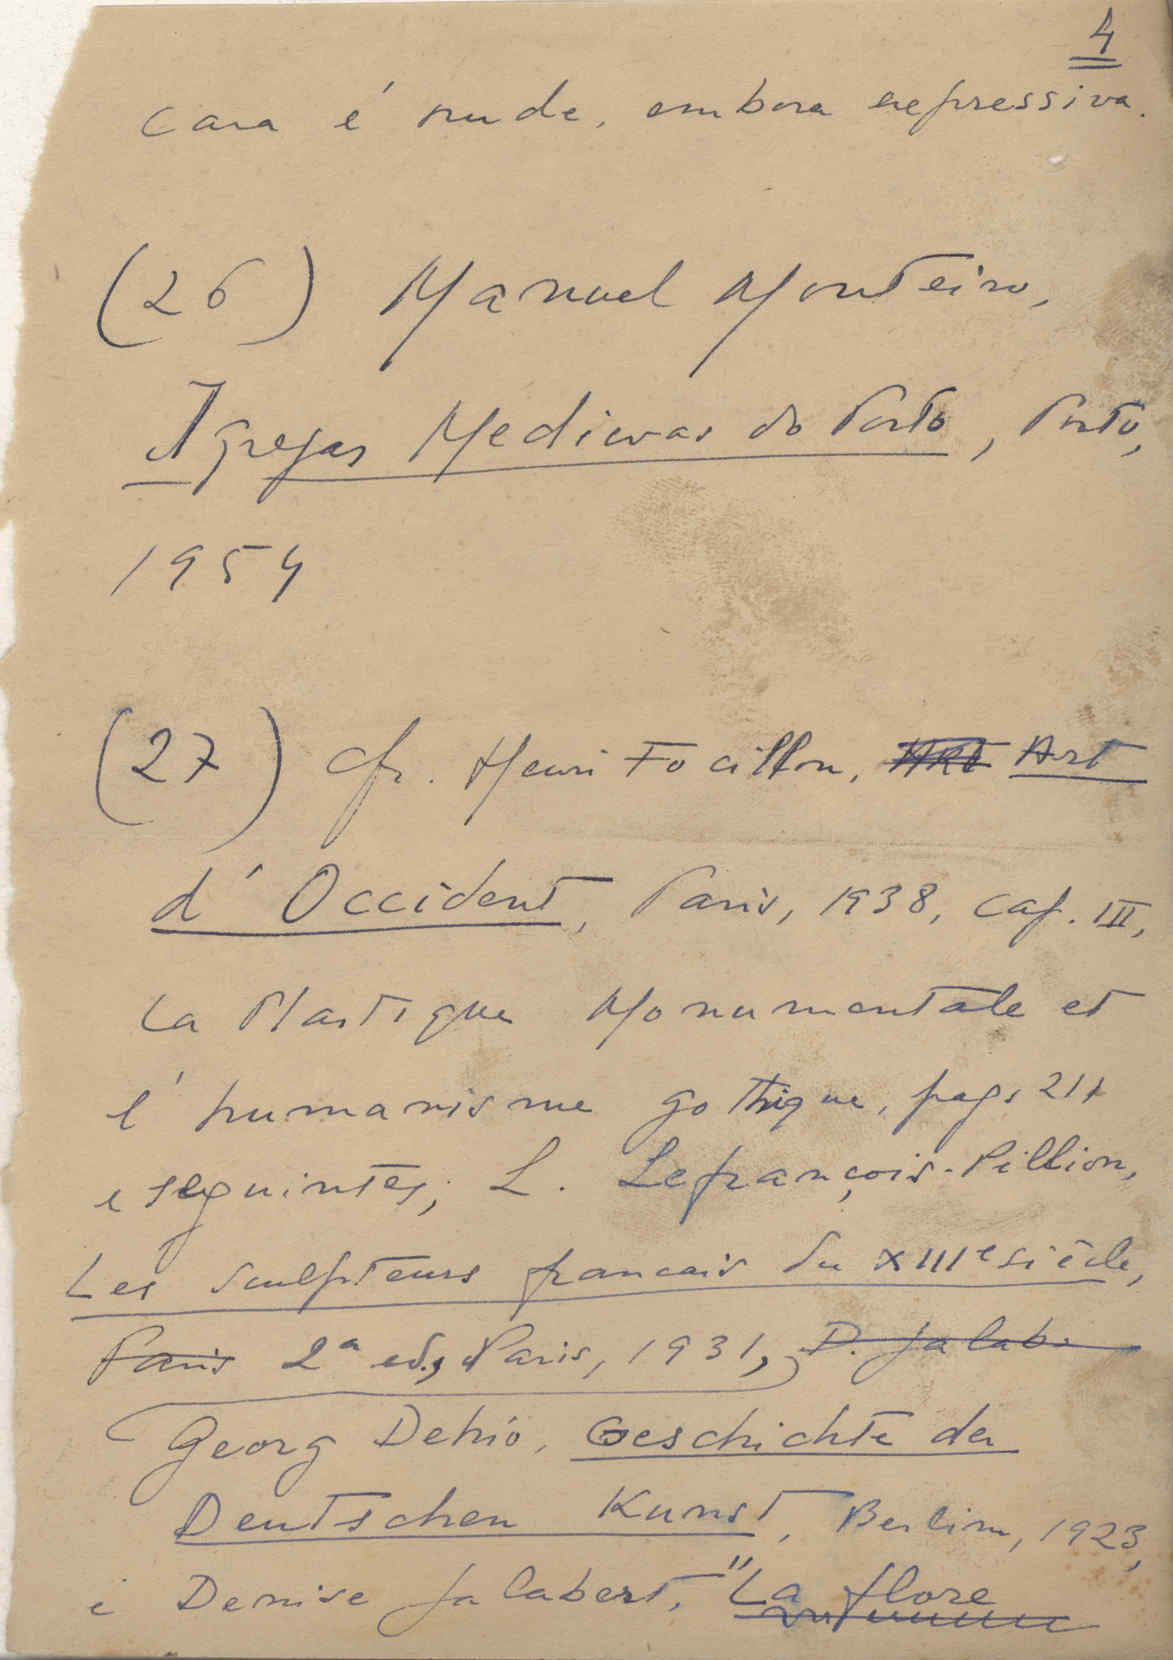 4
cara é rude, embora expressiva.
(26) Manuel Monteiro,
Igrejas Medievas do Porto, Porto,
1954
(27) Cfr. Henri Focillon, Art Art
d'Occident, Paris, 1938, cap. III,
La Plastique Monumentale et
l'humanisme gothique, pags 217
e seguintes; L. Lefrançois-Pillion,
Les sculpteurs francais du XIIIe siècle,
Paris 2ª ed., Paris, 1931, D. Jalab
Georg Dehio, Geschichte der
Deutschen Kunst, Berlim, 1923,
e Denise Jalabert, "La flore